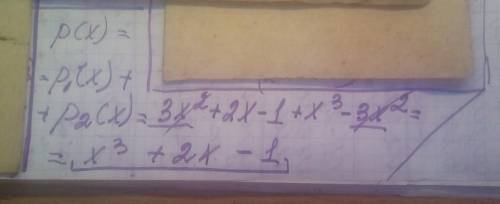 p(x) =
= p₁(x) +
+ p₂(x) = 3x² + 2x - 1 + x³ - 3x² =
= x³ + 2x - 1